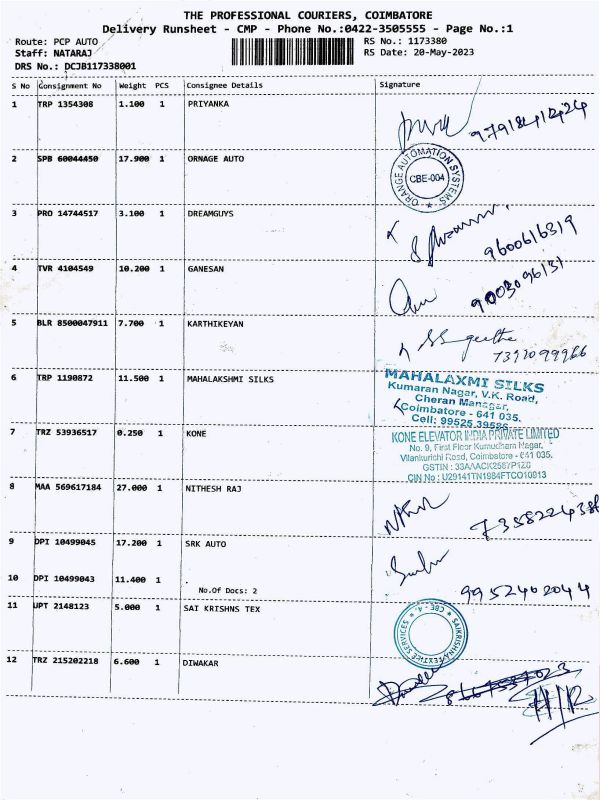 THE PROFESSIONAL COURIERS, COIMBATORE
Delivery Runsheet - CMP - Phone No.:0422-3505555 - Page No.:1
Route: PCP AUTO RS No.: 1173380
Staff: NATARAJ RS Date: 20-May-2023
DRS No.: DCJB117338001
S No Consignment No Weight PCS Consignee Details Signature
1 TRP 1354308 1.100 1 PRIYANKA
2 SPB 60044450 17.900 1 ORNAGE AUTO
ORANGE AUTOMATION SYSTEMS
CBE-004
3 PRO 14744517 3.100 1 DREAMGUYS
9600616319
4 TVR 4104549 10.200 1 GANESAN
9003096131
5 BLR 8500047911 7.700 1 KARTHIKEYAN
6 TRP 1190872 11.500 1 MAHALAKSHMI SILKS
MAHALAXMI SILKS
Kumaran Nagar, V.K. Road,
Cheran Managar,
Coimbatore - 641 035.
Cell: 99525 39586
7 TRZ 53936517 0.250 1 KONE
KONE ELEVATOR INDIA PRIVATE LIMITED
No. 9, First Floor Kumudham Nagar,
Vilankurichi Road, Coimbatore - 641 035.
CIN No : U29141TN1984FTCO10913
8 MAA 569617184 27.000 1 NITHESH RAJ
9 DPI 10499045 17.200 1 SRK AUTO
10 DPI 10499043 11.400 1
No.Of Docs: 2
9952402044
11 UPT 2148123 5.000 1 SAI KRISHNS TEX
12 TRZ 215202218 6.600 1 DIWAKAR